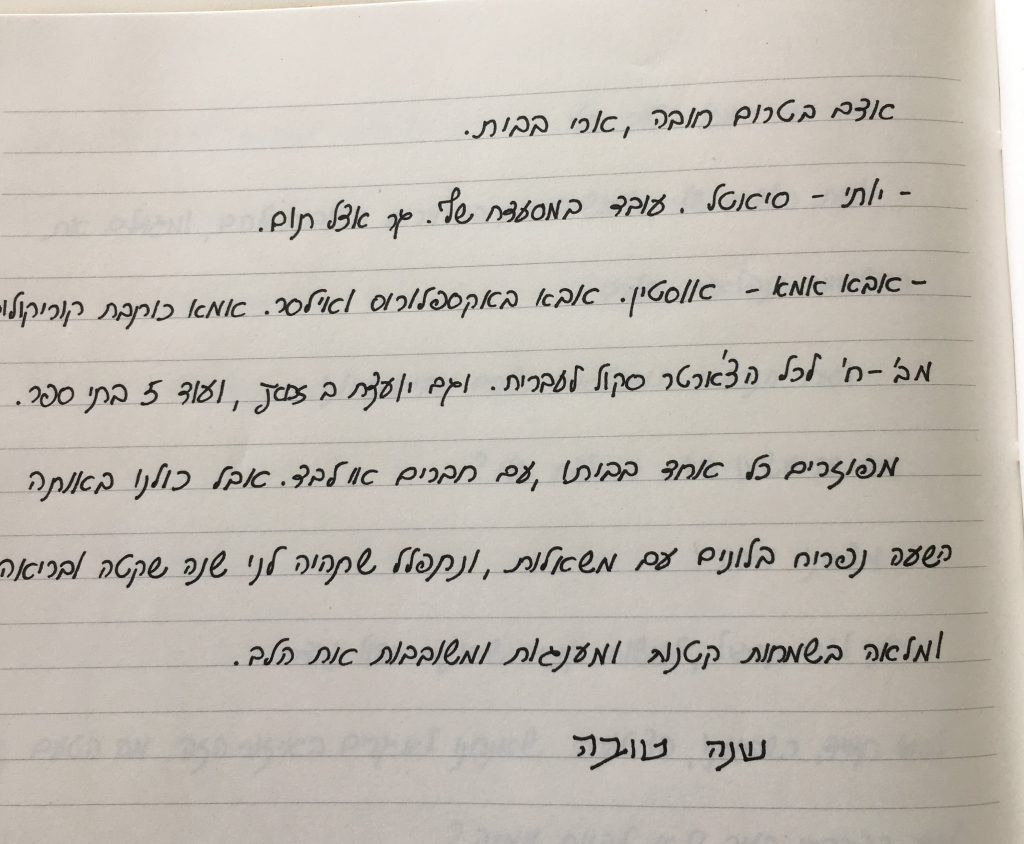 אצב בטרום חובה, ארי בבית.
- יותי - סיאטל. עובד במסעדת שף. גר אצל תום.
- אבא אמא - אווסטין. אבא באקספלורוס ואילסר. אמא כותבת
מב'-ח' לכל הצ'ארטר סקול לעברית. וגם יועצת ב, ועוד 5 בתי ספר.
מפוזרים כל אחד בביתו, עם חברים או לבד. אבל כולנו באותה
השעה נפריח בלונים עם משאלות, ונתפלל שתהיה לני שנה שקטה ובריאה
ומלאה בשמחות קטנות ומענגות ומשובבות את הלב.
שנה טובה